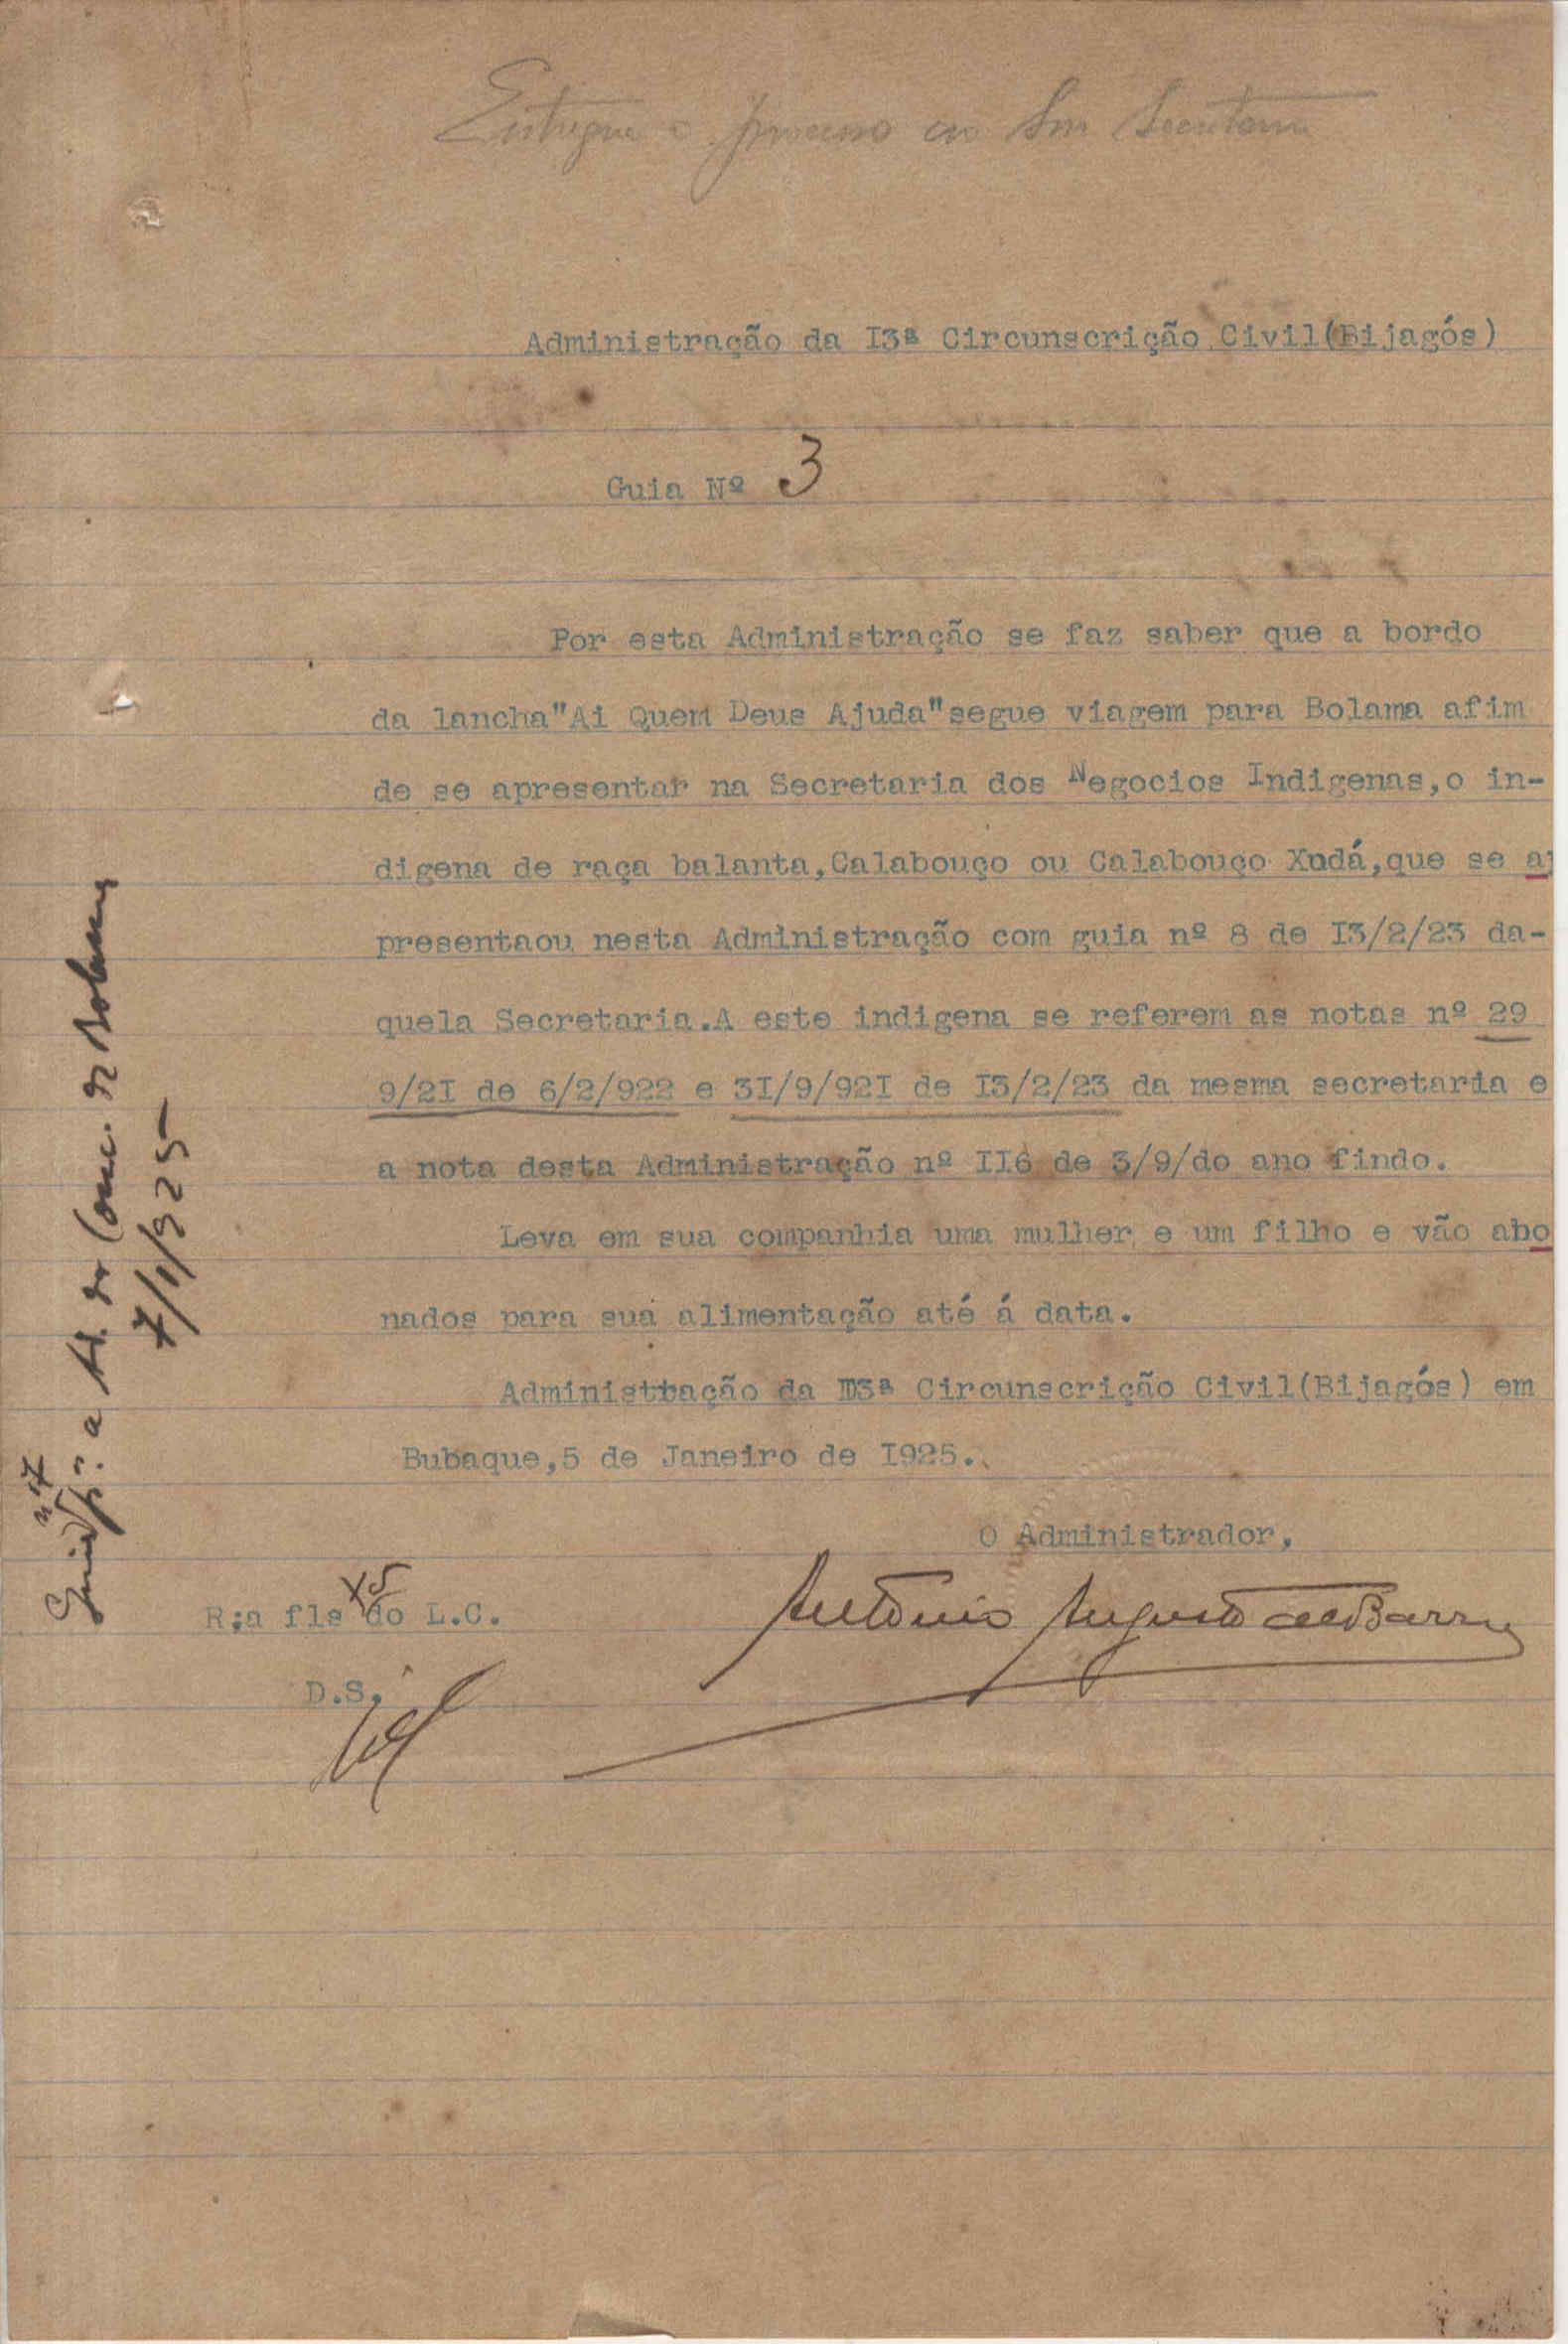 Entregue o processo ao Snr Secretario
Administração da I3ª Circunscrição Civil(Bijagós)
Guia Nº 3
Por esta Administração se faz saber que a bordo
da lancha"Ai Quem Deus Ajuda"segue viagem para Bolama afim
de se apresentar na Secretaria dos Negocios Indigenas,o in-
digena de raça balanta,Calabouço ou Calabouço Xudá,que se a
presentaou nesta Administração com guia nº 8 de I3/2/23 da-
quela Secretaria.A este indigena se referem as notas nº 29
9/2I de 6/2/922 e 3I/9/92I de I3/2/23 da mesma secretaria e
a nota desta Administração nº II6 de 3/9/do ano findo.
Leva em sua companhia uma mulher e um filho e vão abo
nados para sua alimentação até á data.
Administração da I3ª Circunscrição Civil(Bijagós) em
Bubaque,5 de Janeiro de I925.
O Administrador,
António Augusto de Barros
R;a fls 45 do L.C.
D.S.
Guia nº 7 pª. a A. do Conc. de Bolama
7/1/925